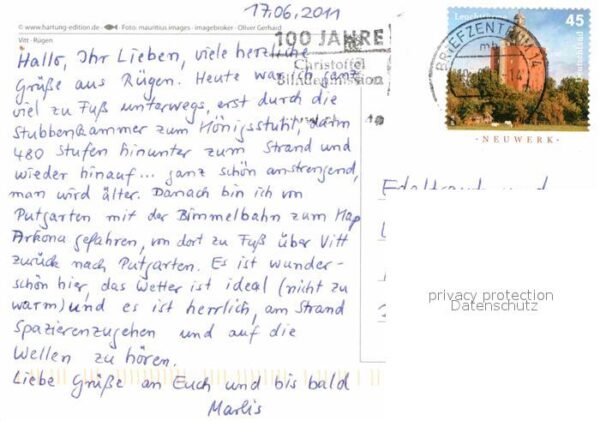 17.06.2011
© www.hartung-edition.de · Foto: mauritius images - imagebroker - Oliver Gerhard
Vitt - Rügen
100 JAHRE
Christoffel
Blindenmission
Hallo, Ihr Lieben, viele herzliche
Grüße aus Rügen. Heute war ich ganz
viel zu Fuß unterwegs, erst durch die
Stubbenkammer zum Königsstuhl, dann
480 Stufen hinunter zum Strand und
wieder hinauf... ganz schön anstrengend,
man wird älter. Danach bin ich von
Putgarten mit der Bimmelbahn zum Kap
Arkona gefahren, von dort zu Fuß über Vitt
zurück nach Putgarten. Es ist wunder-
schön hier, das Wetter ist ideal (nicht zu
warm) und es ist herrlich, am Strand
Spazierenzugehen und auf die
Wellen zu hören.
Liebe Grüße an Euch und bis bald
Marlis
45
BRIEFZENTRUM
NEUWERK
privacy protection
Datenschutz